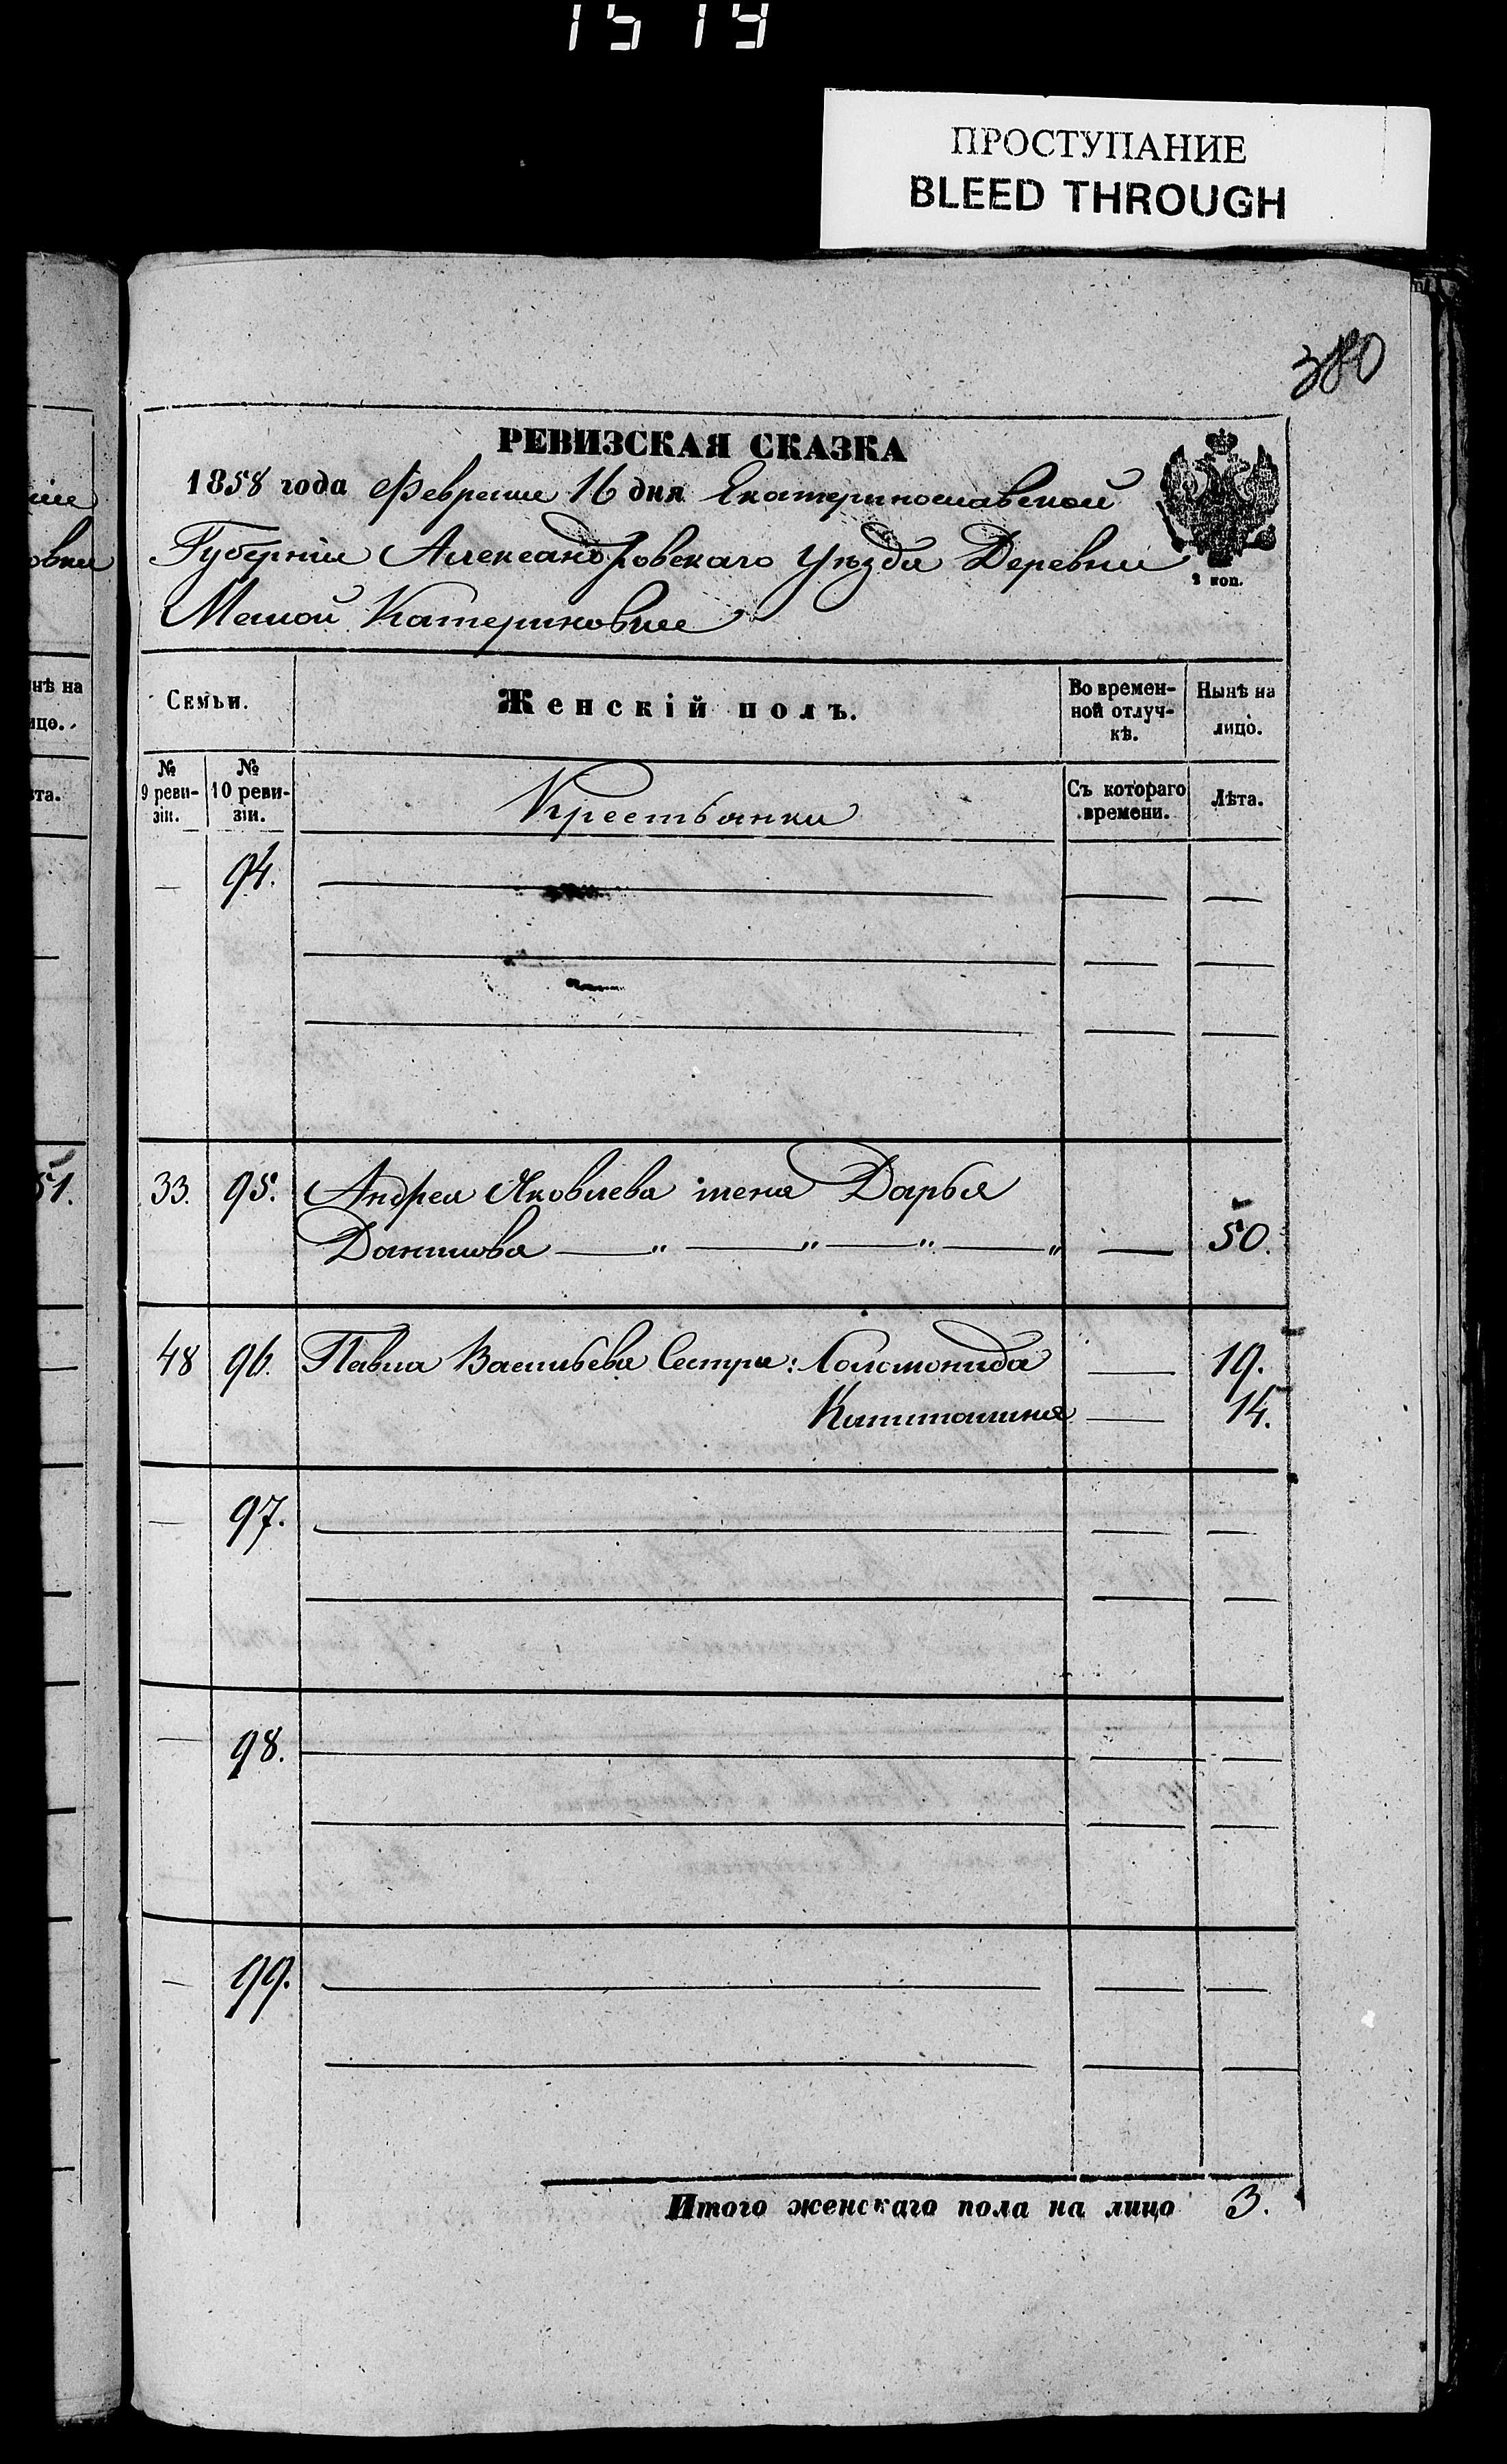 1519
ПРОСТУПАНИЕ
BLEED THROUGH
380
РЕВИЗСКАЯ СКАЗКА
1858 года Февраля 16 дня Екатеринославской
Губерніи Александровскаго Уѣзда Деревни
Малой Катериновки
2 коп.
Семьи. Женскій полъ. Во времен-ной отлуч-кѣ. Нынѣ на лицо.
№ 9 реви-зіи. № 10 реви-зіи. Крестьянки Съ котораго времени. Лѣта.
— 94. — — —
33. 95. Андрея Яковлева жена Дарья
Данилова — „ — „ — „ — „ — 50.
48 96. Павла Васильева Сестры: Соломонида — 19.
Капитолина — 14.
— 97. — — —
— 98. — — —
— 99. — — —
Итого женскаго пола на лицо 3.
нѣ на
ицо.
та.
51.